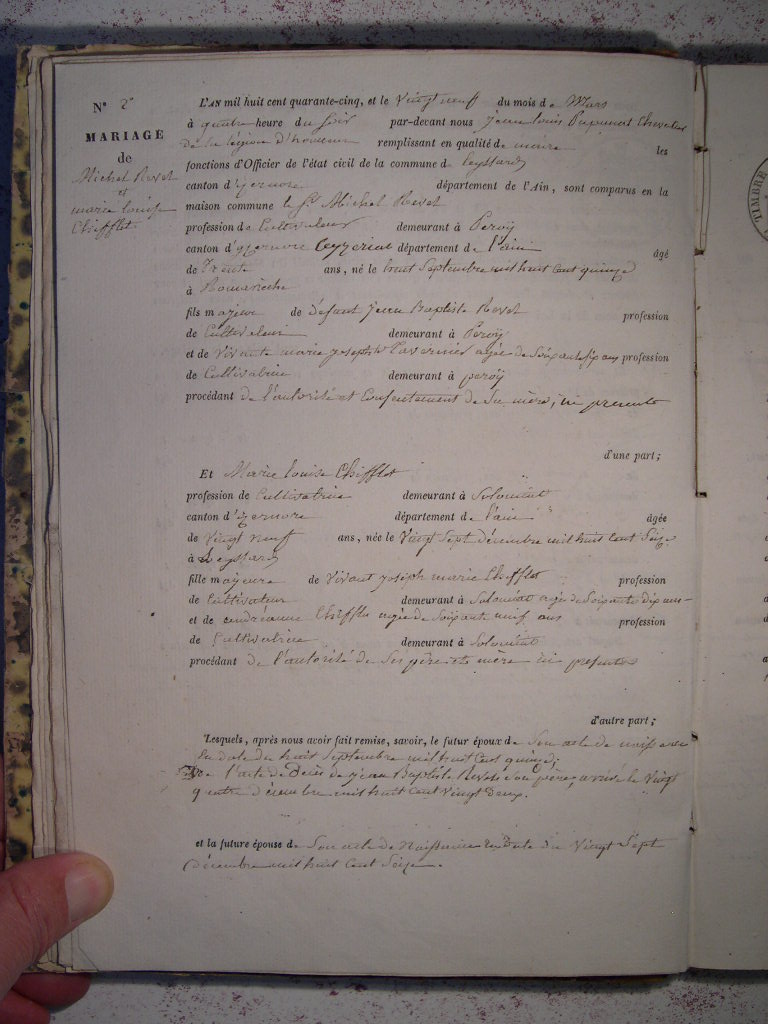 N° 2
MARIAGE
de
Michel Revel
et
marie louise
Chifflet
L'AN mil huit cent quarante-cinq, et le Vingt neuf du mois de Mars
à quatre heure du soir par-devant nous jean louis Chevalier
De la légion d'honneur remplissant en qualité de maire les
fonctions d'Officier de l'état civil de la commune de leyssard
canton d'izernore département de l'Ain, sont comparus en la
maison commune le Sr Michel Revel
profession de Cultivateur demeurant à
canton d' département de l'ain âgé
de Trente ans, né le huit Septembre mil huit Cent quinze
à Romanèche
fils majeur de défunt jean Baptiste Revel profession
de Cultivateur demeurant à
et de Vivante marie josephte Tavernier agée de Soixante six ans profession
de Cultivatrice demeurant à
procédant de l'autorité et Consentement de Sa mère, ici presente
d'une part;
Et Marie louise Chifflet
profession de Cultivatrice demeurant à Solomiat
canton d'izernore département de l'ain âgée
de Vingt neuf ans, née le Vingt Sept décembre mil huit Cent Seize
à Leyssard
fille majeure de Vivant joseph marie Chifflet profession
de Cultivateur demeurant à Solomiat agé de Soixante dix ans
et de Chifflet agée de Soixante neuf ans profession
de Cultivatrice demeurant à Solomiat
procédant de l'autorité de Ses père et mère ici presents
d'autre part;
Lesquels, après nous avoir fait remise, savoir, le futur époux de Son acte de
En date du huit Septembre mil huit Cent quinze;
De l'acte de Décès de jean Baptiste Revel Son père, arrivé le Vingt
quatre décembre mil huit Cent Vingt Deux.
et la future épouse de Son acte de Naissance En Date du Vingt Sept
décembre mil huit Cent Seize.
TIMBRE